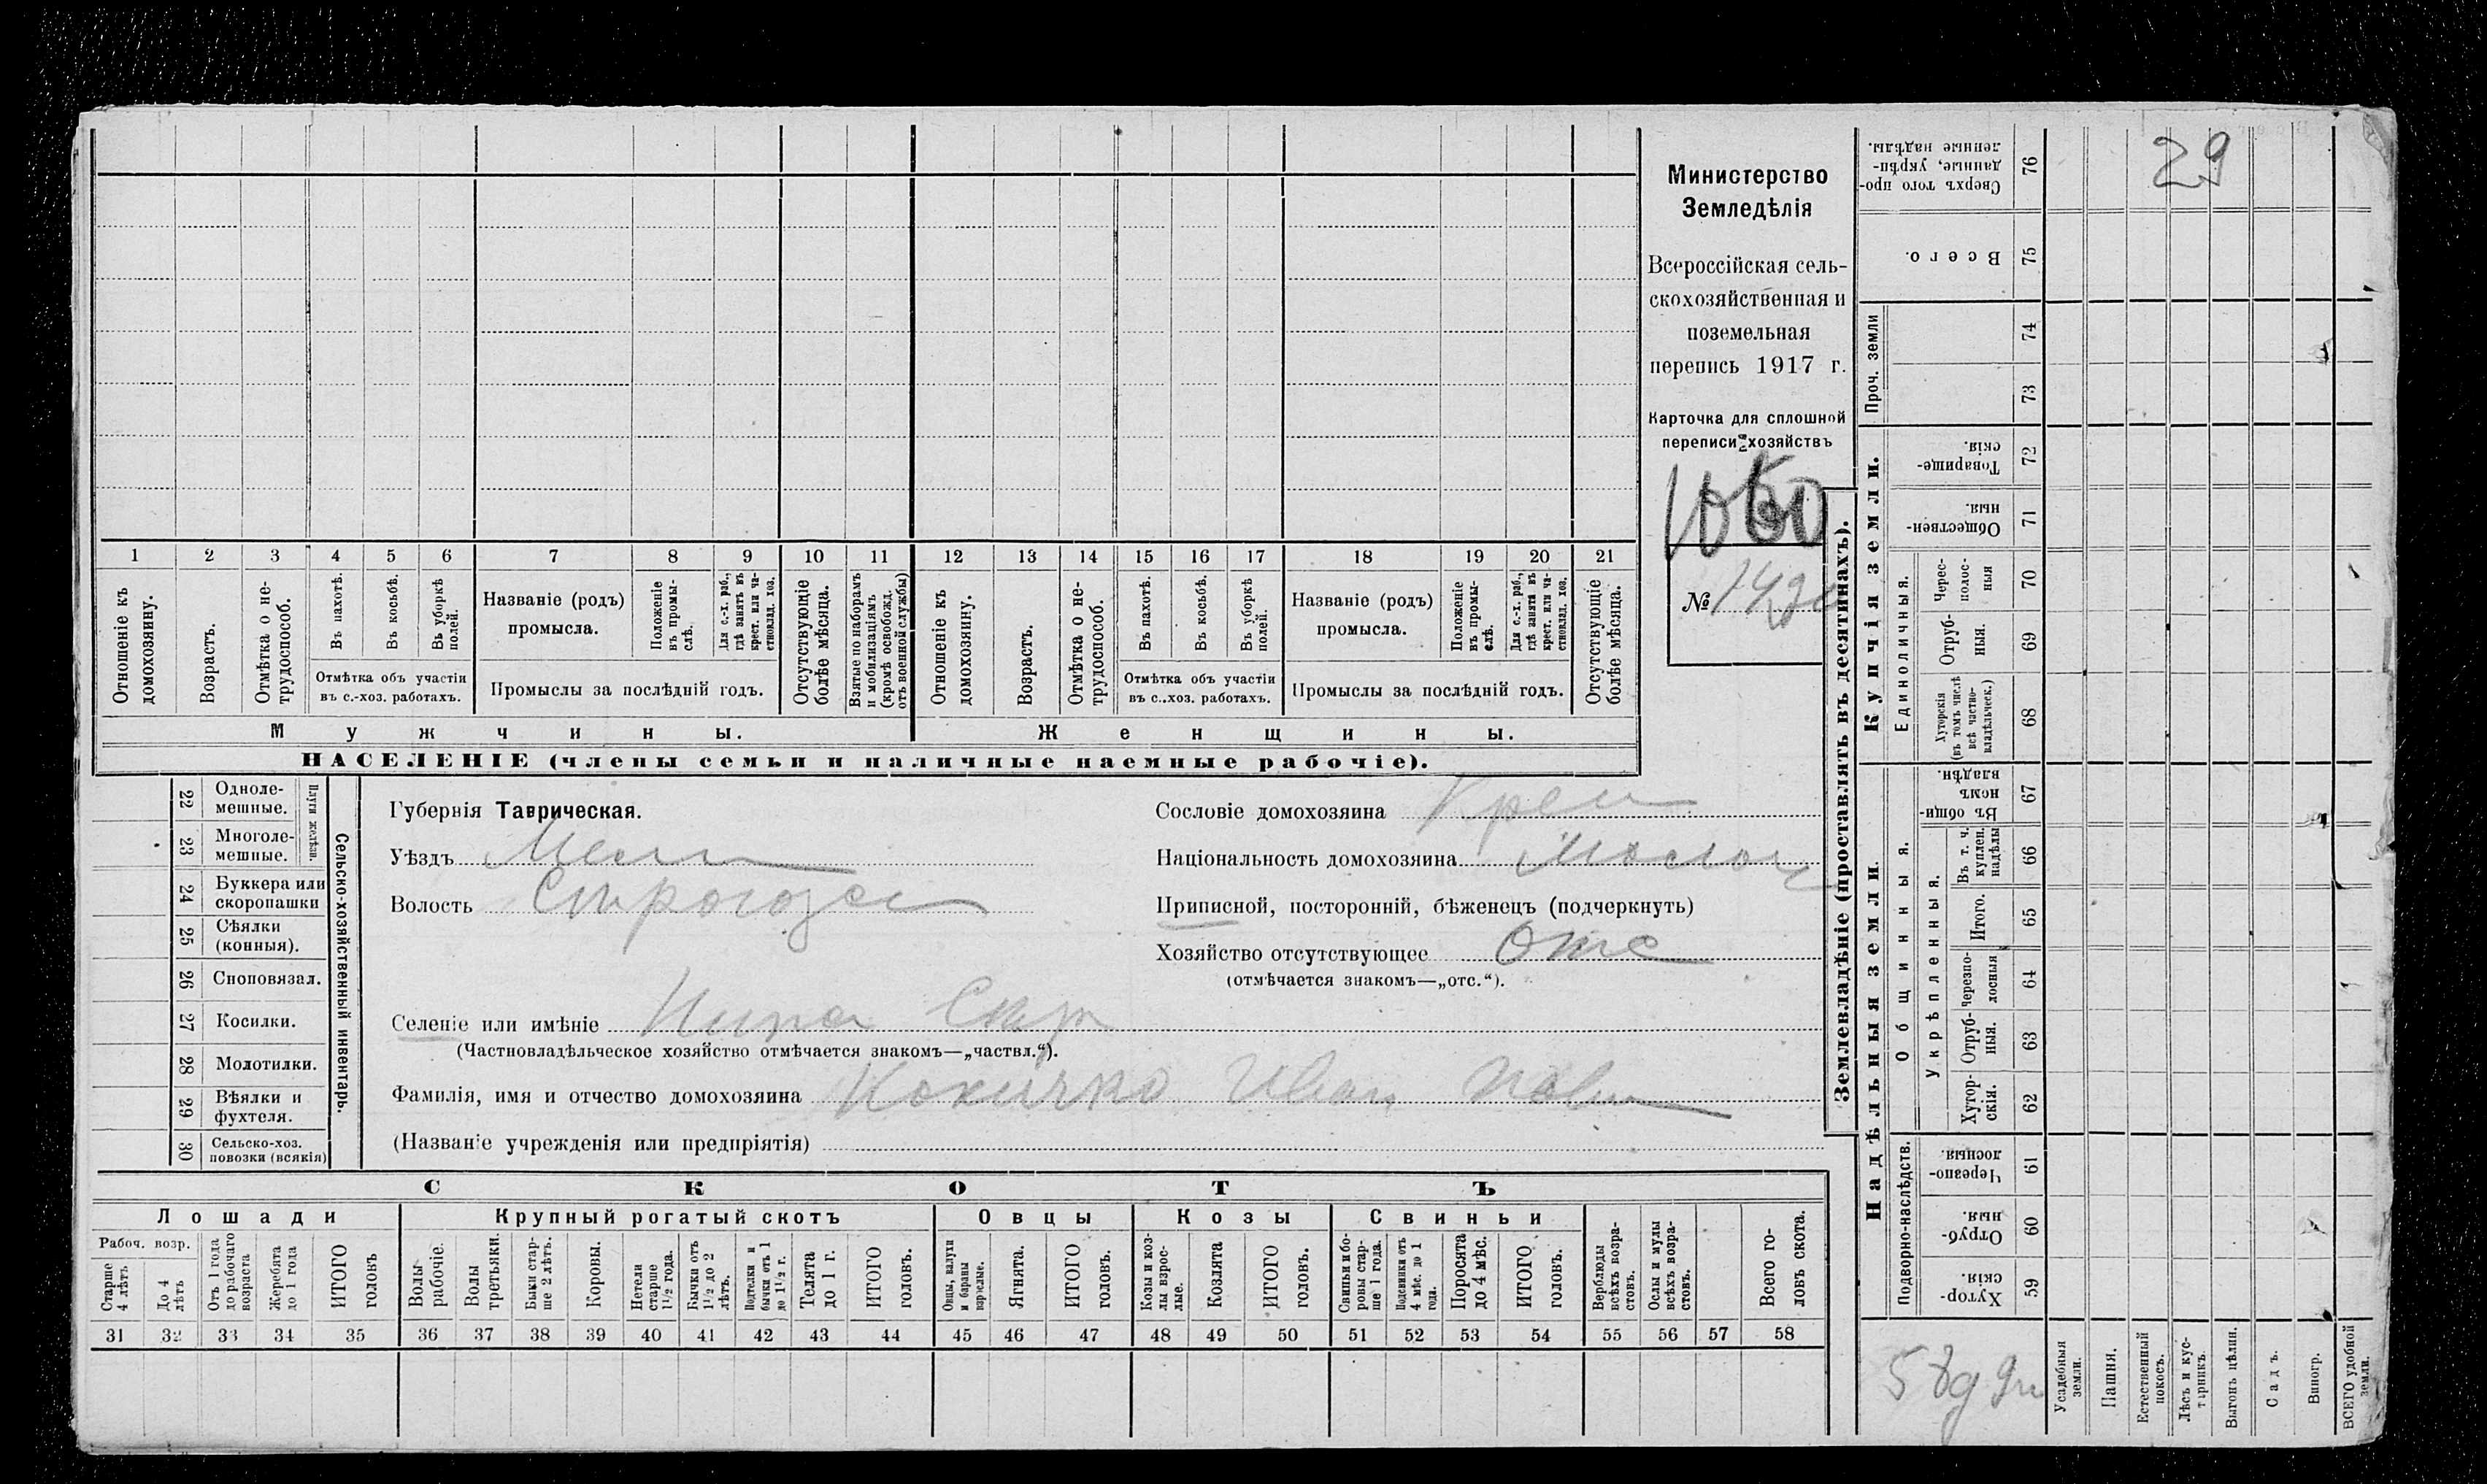 Министерство
Земледѣлія
Всероссійская сель-
скохозяйственная и
поземельная
перепись 1917 г.
Карточка для сплошной
переписи хозяйствъ
№
29
1 2 3 4 5 6 7 8 9 10 11 12 13 14 15 16 17 18 19 20 21
Отношеніе къ домохозяину.
Возрастъ.
Отмѣтка о не-трудоспособ.
Въ пахотѣ.
Въ косьбѣ.
Въ уборкѣ полей.
Отмѣтка объ участіи
въ с.-хоз. работахъ.
Названіе (родъ)
промысла.
Положеніе въ промы-слѣ.
Для с.-х. раб., гдѣ занятъ въ крест. или ча-стновлад. хоз.
Промыслы за послѣдній годъ.
Отсутствующіе болѣе мѣсяца.
Взятые по наборамъ и мобилизаціямъ (кромѣ освобожд. отъ военной службы)
Отношеніе къ домохозяину.
Возрастъ.
Отмѣтка о не-трудоспособ.
Въ пахотѣ.
Въ косьбѣ.
Въ уборкѣ полей.
Отмѣтка объ участіи
въ с..хоз. работахъ.
Названіе (родъ)
промысла.
Положеніе въ промы-слѣ.
Для с.-х. раб., гдѣ занята въ крест. или ча-стновлад. хоз.
Промыслы за послѣдній годъ.
Отсутствующіе болѣе мѣсяца.
Мужчины.
Женщины.
НАСЕЛЕНІЕ (члены семьи и наличные наемные рабочіе).
Сельско-хозяйственный инвентарь.
Плуги желѣзн.
22 Одноле-мешные.
23 Многоле-мешные.
24 Буккера или скоропашки
25 Сѣялки (конныя).
26 Сноповязал.
27 Косилки.
28 Молотилки.
29 Вѣялки и фухтеля.
30 Сельско-хоз. повозки (всякія)
Губернія Таврическая.
Уѣздъ Мели
Волость
Селеніе или имѣніе
(Частновладѣльческое хозяйство отмѣчается знакомъ—„частвл.“).
Фамилія, имя и отчество домохозяина Иван
(Названіе учрежденія или предпріятія)
Сословіе домохозяина Крес
Національность домохозяина
Приписной, посторонній, бѣженецъ (подчеркнуть)
Хозяйство отсутствующее Отс
(отмѣчается знакомъ—„отс.“).
СКОТЪ
Лошади
Крупный рогатый скотъ
Овцы
Козы
Свиньи
Рабоч. возр.
Старше 4 лѣтъ
До 4 лѣтъ
Отъ 1 года до рабочаго возраста
Жеребята до 1 года
ИТОГО головъ
Волы рабочіе.
Волы третьяки.
Быки стар-ше 2 лѣтъ.
Коровы.
Нетели старше 1½ года.
Бычки отъ 1½ до 2 лѣтъ.
Подтелки и бычки отъ 1 до 1½ г.
Телята до 1 г.
ИТОГО головъ.
Овцы, валухи и бараны взрослые.
Ягнята.
ИТОГО головъ.
Козы и коз-лы взрос-лые.
Козлята
ИТОГО головъ.
Свиньи и бо-ровы стар-ше 1 года.
Подсвинки отъ 4 мѣс. до 1 года.
Поросята до 4 мѣс.
ИТОГО головъ.
Верблюды всѣхъ возра-стовъ.
Ослы и мулы всѣхъ возра-стовъ.
Всего го-ловъ скота.
31 32 33 34 35 36 37 38 39 40 41 42 43 44 45 46 47 48 49 50 51 52 53 54 55 56 57 58
Землевладѣніе (проставлять въ десятинахъ).
Надѣльныя земли.
Купчія земли.
Проч. земли
Подворно-наслѣдств.
Общинныя.
Укрѣпленныя.
Единоличныя.
Сверхъ того про-данные, укрѣп-ленные надѣлы. 76
Всего. 75
74
73
Товарище-скія. 72
Обществен-ныя. 71
Черес-полос-ныя 70
Отруб-ныя. 69
Хуторскія (въ томъ числѣ всѣ частно-владѣльческ.) 68
Въ общи-номъ владѣн. 67
Въ т. ч. куплен. надѣлы 66
Итого. 65
Черезпо-лосныя 64
Отруб-ныя. 63
Хутор-скія. 62
Черезпо-лосныя. 61
Отруб-ныя. 60
Хутор-скія. 59
Усадебныя земли.
Пашня.
Естественный покосъ.
Лѣсъ и кус-тарникъ.
Выгонъ цѣлин.
Садъ.
Виногр.
ВСЕГО удобной земли.